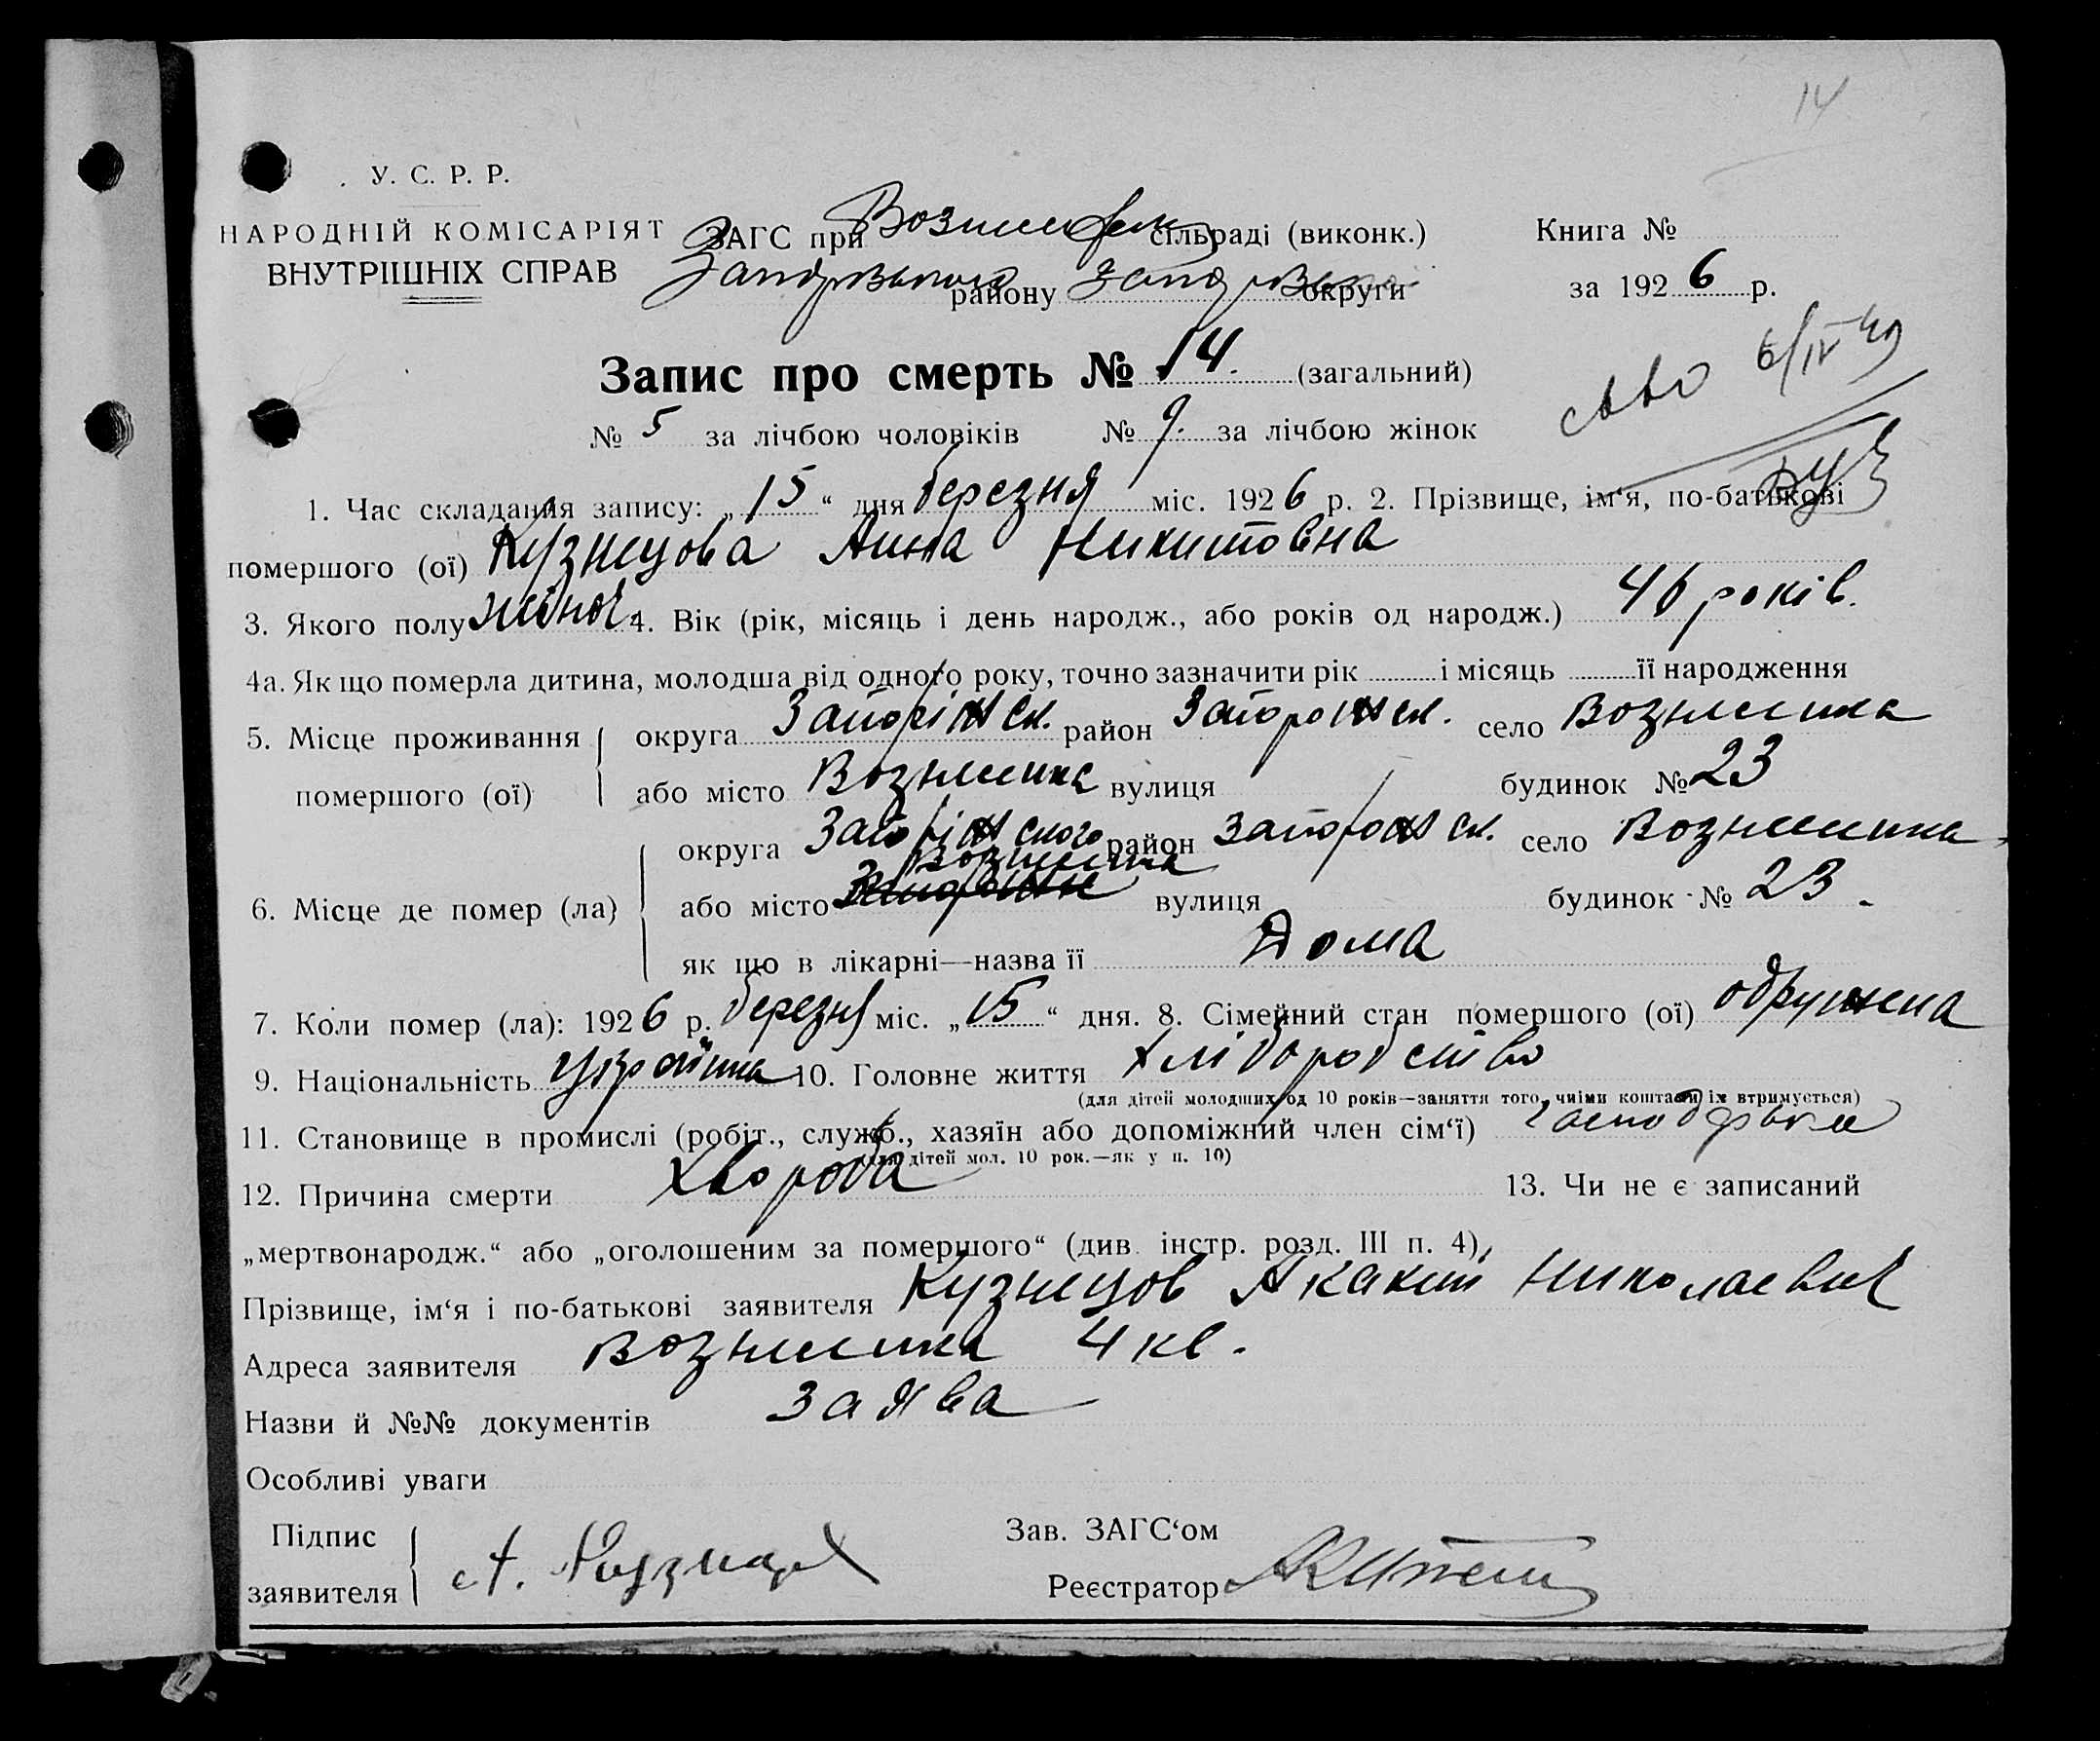 14
У. С. Р. Р.
НАРОДНІЙ КОМІСАРІЯТ
ВНУТРІШНІХ СПРАВ
ЗАГС при сільраді (виконк.)
району округи
Книга №
за 1926 р.
Запис про смерть № 14. (загальний)
№ 5 за лічбою чоловіків № 9. за лічбою жінок
1. Час складання запису: „15“ дня березня міс. 1926 р. 2. Прізвище, ім‘я, по-батькові
помершого (ої) Кузнецова Анна Никитовна
3. Якого полу жіноч 4. Вік (рік, місяць і день народж., або років од народж.) 46 років.
4а. Як що померла дитина, молодша від одного року, точно зазначити рік і місяць її народження
5. Місце проживання помершого (ої) округа Запоріжск. район Запорожск. село Вознесинка
або місто Вознесинка вулиця будинок № 23
6. Місце де помер (ла) округа Запоріжского район Запорожск. село Вознесинка
або місто Вознесинка вулиця будинок № 23.
як що в лікарні—назва її Дома
7. Коли помер (ла): 1926 р. березня міс. „15“ дня. 8. Сімейний стан помершого (ої) одружена
9. Національність Українка 10. Головне життя хліборобство
(для дітей молодших од 10 років—заняття того, чиїми коштами їх втримується)
11. Становище в промислі (робіт., служб., хазяїн або допоміжний член сім‘ї)
(для дітей мол. 10 рок.—як у п. 10)
12. Причина смерти Хвороба 13. Чи не є записаний
„мертвонародж.“ або „оголошеним за помершого“ (див. інстр. розд. III п. 4),
Прізвище, ім‘я і по-батькові заявителя Кузнецов Акакий Николаевич
Адреса заявителя Вознесинка 4 кв.
Назви й №№ документів заява
Особливі уваги
Підпис заявителя А. Кузнецов
Зав. ЗАГС‘ом
Реєстратор